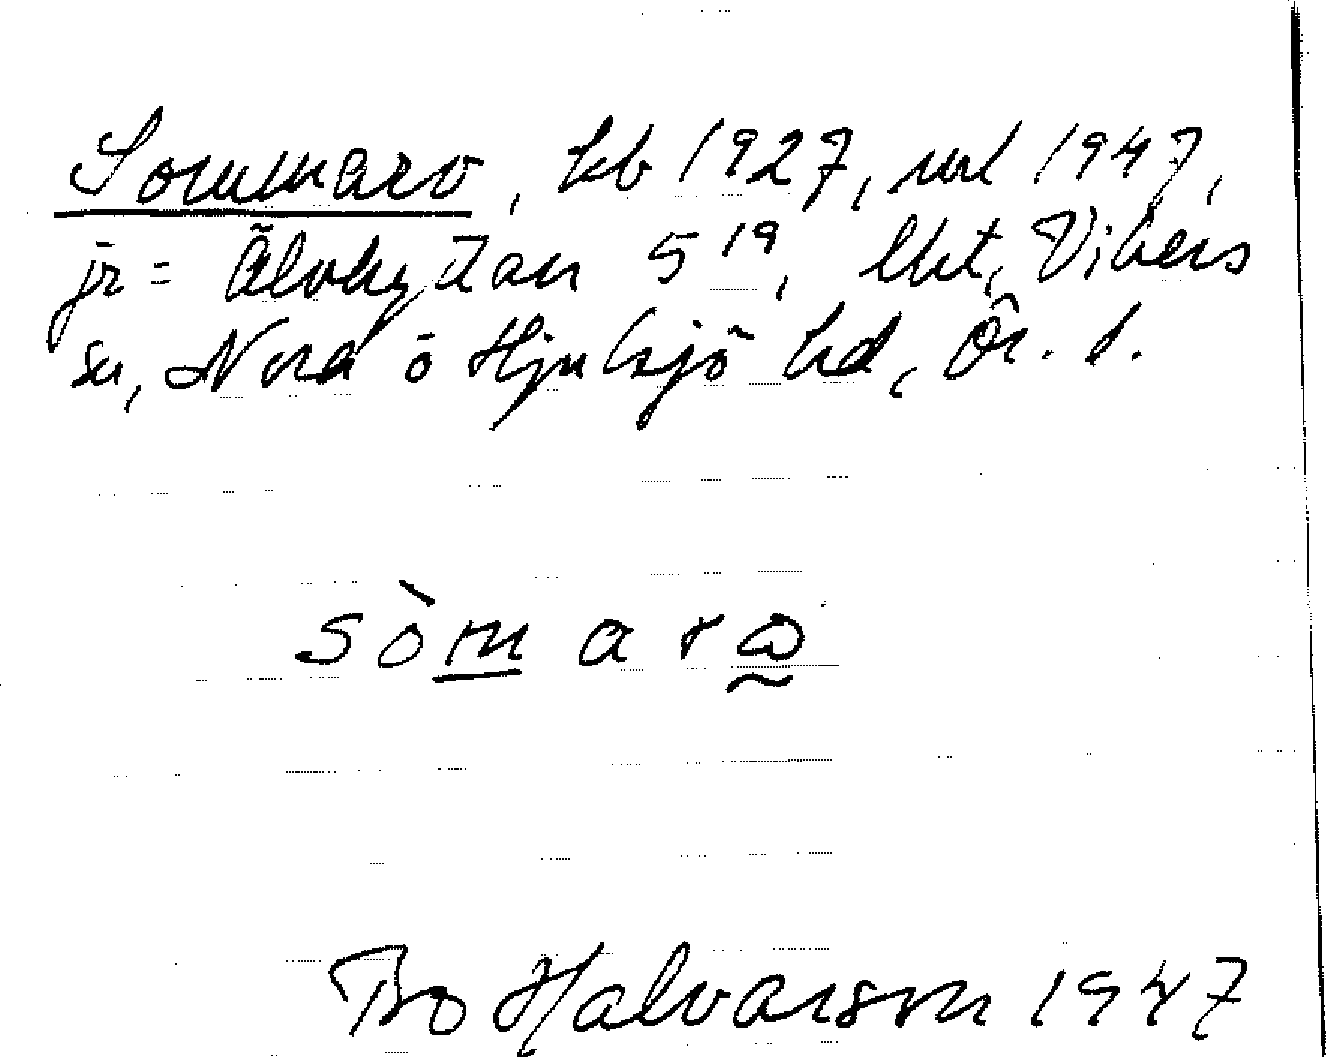 Sommarro, kb 1927, url 1947,
jr = Älvhyttan 5¹⁹, lht, Vikers
sn, Nora ō Hjulsjö hd, Ör. l.
sòm a r ω
Bo Halvarson 1947